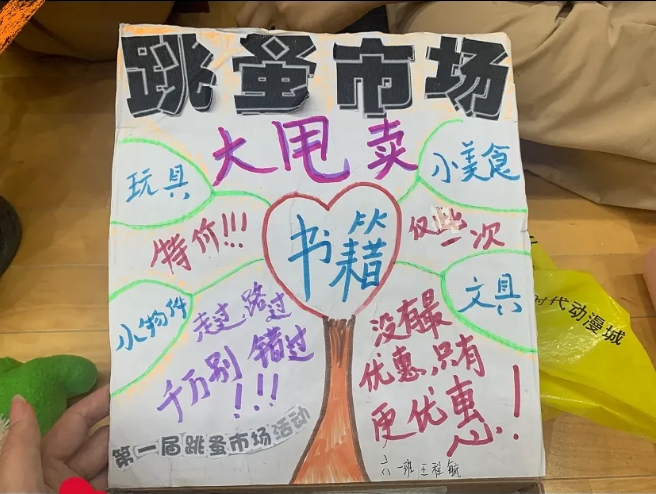 跳蚤市场
大甩卖
玩具
小美食
特价!!!
书籍
仅此一次
小物件
文具
走过路过
千万别错过
!!!
没有最
优惠,只有
更优惠!
第一届跳蚤市场活动
时代动漫城